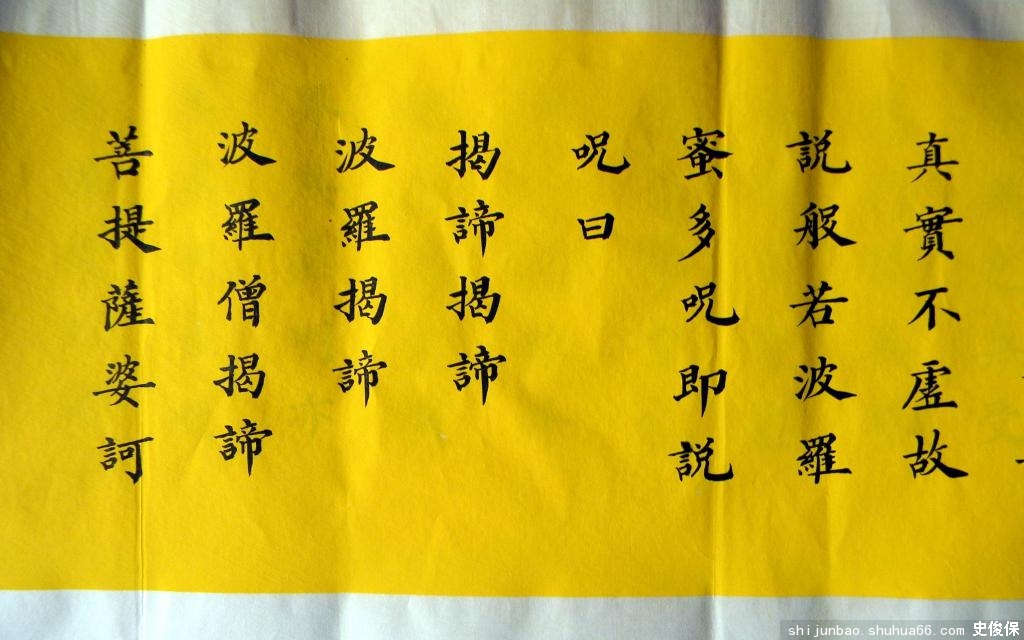 真實不虛故
説般若波羅
蜜多呪即説
呪曰
揭諦揭諦
波羅揭諦
波羅僧揭諦
菩提薩婆訶
shijunbao.shuhua66.com 史俊保